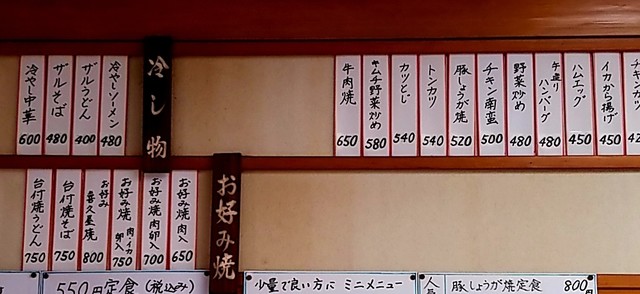 冷し物
冷やしソーメン 480
ザルうどん 400
ザルそば 480
冷やし中華 600
チキンカツ 42
イカから揚げ 450
ハムエッグ 450
手造りハンバーグ 480
野菜炒め 480
チキン南蛮 500
豚しょうが焼 520
トンカツ 540
カツとじ 540
キムチ野菜炒め 580
牛肉焼 650
お好み焼
お好み焼 肉入 650
お好み焼 肉卵入 700
お好み焼 肉・イカ卵入 750
お好み 喜久屋焼 800
台付焼そば 750
台付焼うどん 750
550円定食 (税込み)
少量で良い方に ミニメニュー
人気
豚しょうが焼定食 800円